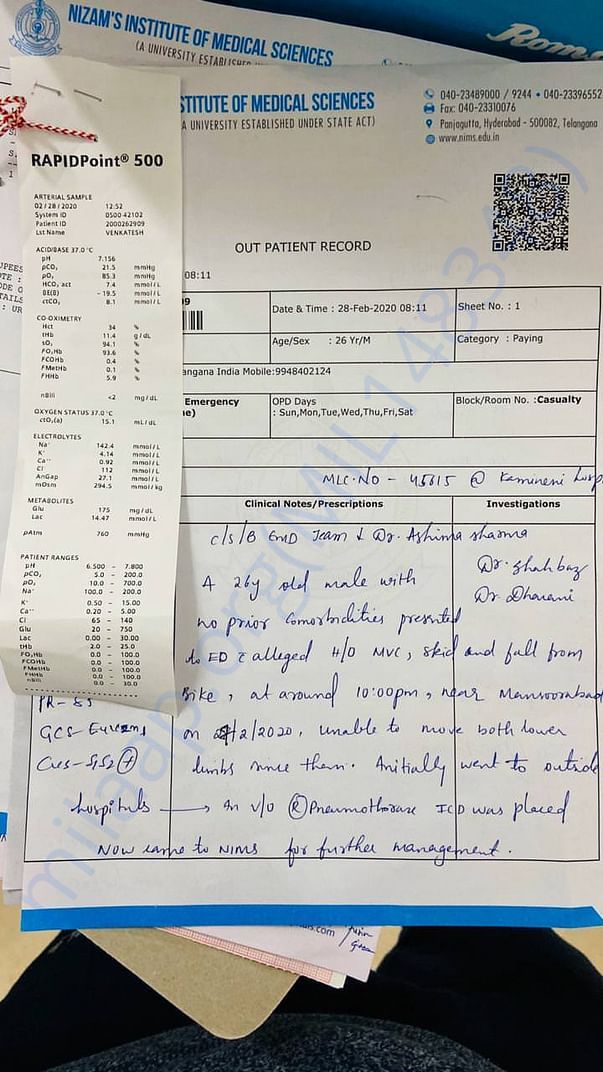 NIZAM'S INSTITUTE OF MEDICAL SCIENCES
(A UNIVERSITY ESTABLISHED
Roms
STITUTE OF MEDICAL SCIENCES
A UNIVERSITY ESTABLISHED UNDER STATE ACT)
040-23489000 / 9244 • 040-23396552
Fax: 040-23310076
Panjagutta, Hyderabad - 500082, Telangana
www.nims.edu.in
RAPIDPoint® 500
ARTERIAL SAMPLE
02/28/2020 12:52
System ID 0500-42102
Patient ID 2000262909
Lst Name VENKATESH
ACID/BASE 37.0°C
pH 7.156
pCO₂ 21.5 mmHg
pO₂ 85.3 mmHg
HCO₃ act 7.4 mmol/L
BE(B) -19.5 mmol/L
ctCO₂ 8.1 mmol/L
CO-OXIMETRY
Hct 34 %
tHb 11.4 g/dL
sO₂ 94.1 %
FO₂Hb 93.6 %
FCOHb 0.4 %
FMetHb 0.1 %
FHHb 5.9 %
nBili <2 mg/dL
OXYGEN STATUS 37.0°C
ctO₂(a) 15.1 mL/dL
ELECTROLYTES
Na⁺ 142.4 mmol/L
K⁺ 4.14 mmol/L
Ca⁺⁺ 0.92 mmol/L
Cl⁻ 112 mmol/L
AnGap 27.1 mmol/L
mOsm 294.5 mmol/kg
METABOLITES
Glu 175 mg/dL
Lac 14.47 mmol/L
pAtm 760 mmHg
PATIENT RANGES
pH 6.500 - 7.800
pCO₂ 5.0 - 200.0
pO₂ 10.0 - 700.0
Na⁺ 100.0 - 200.0
K⁺ 0.50 - 15.00
Ca⁺⁺ 0.20 - 5.00
Cl⁻ 65 - 140
Glu 20 - 750
Lac 0.00 - 30.00
tHb 2.0 - 25.0
FO₂Hb 0.0 - 100.0
FCOHb 0.0 - 100.0
FMetHb 0.0 - 100.0
FHHb 0.0 - 100.0
nBili 0.0 - 30.0
OUT PATIENT RECORD
08:11
Date & Time : 28-Feb-2020 08:11
Sheet No. : 1
Age/Sex : 26 Yr/M
Category : Paying
angana India Mobile:9948402124
Emergency
OPD Days
: Sun,Mon,Tue,Wed,Thu,Fri,Sat
Block/Room No. :Casualty
MLC.NO - 45615 @ Kamineni hosp
Clinical Notes/Prescriptions
Investigations
c/s/B EMD Team & Dr. Ashima sharma
Dr. Shahbaz
Dr Dharani
A 26y old male with
no prior comorbidities presented
to ED c̄ alleged H/O MVC, skid and fall from
Bike, at around 10:00pm, near Mansoorabad
PR-85
on 2/2020, unable to move both lower
limbs since then. Initially went to outside
hospitals → In v/o (R) Pneumothorax ICD was placed
Now came to NIMS for further management.
milaap.org(MIL148934